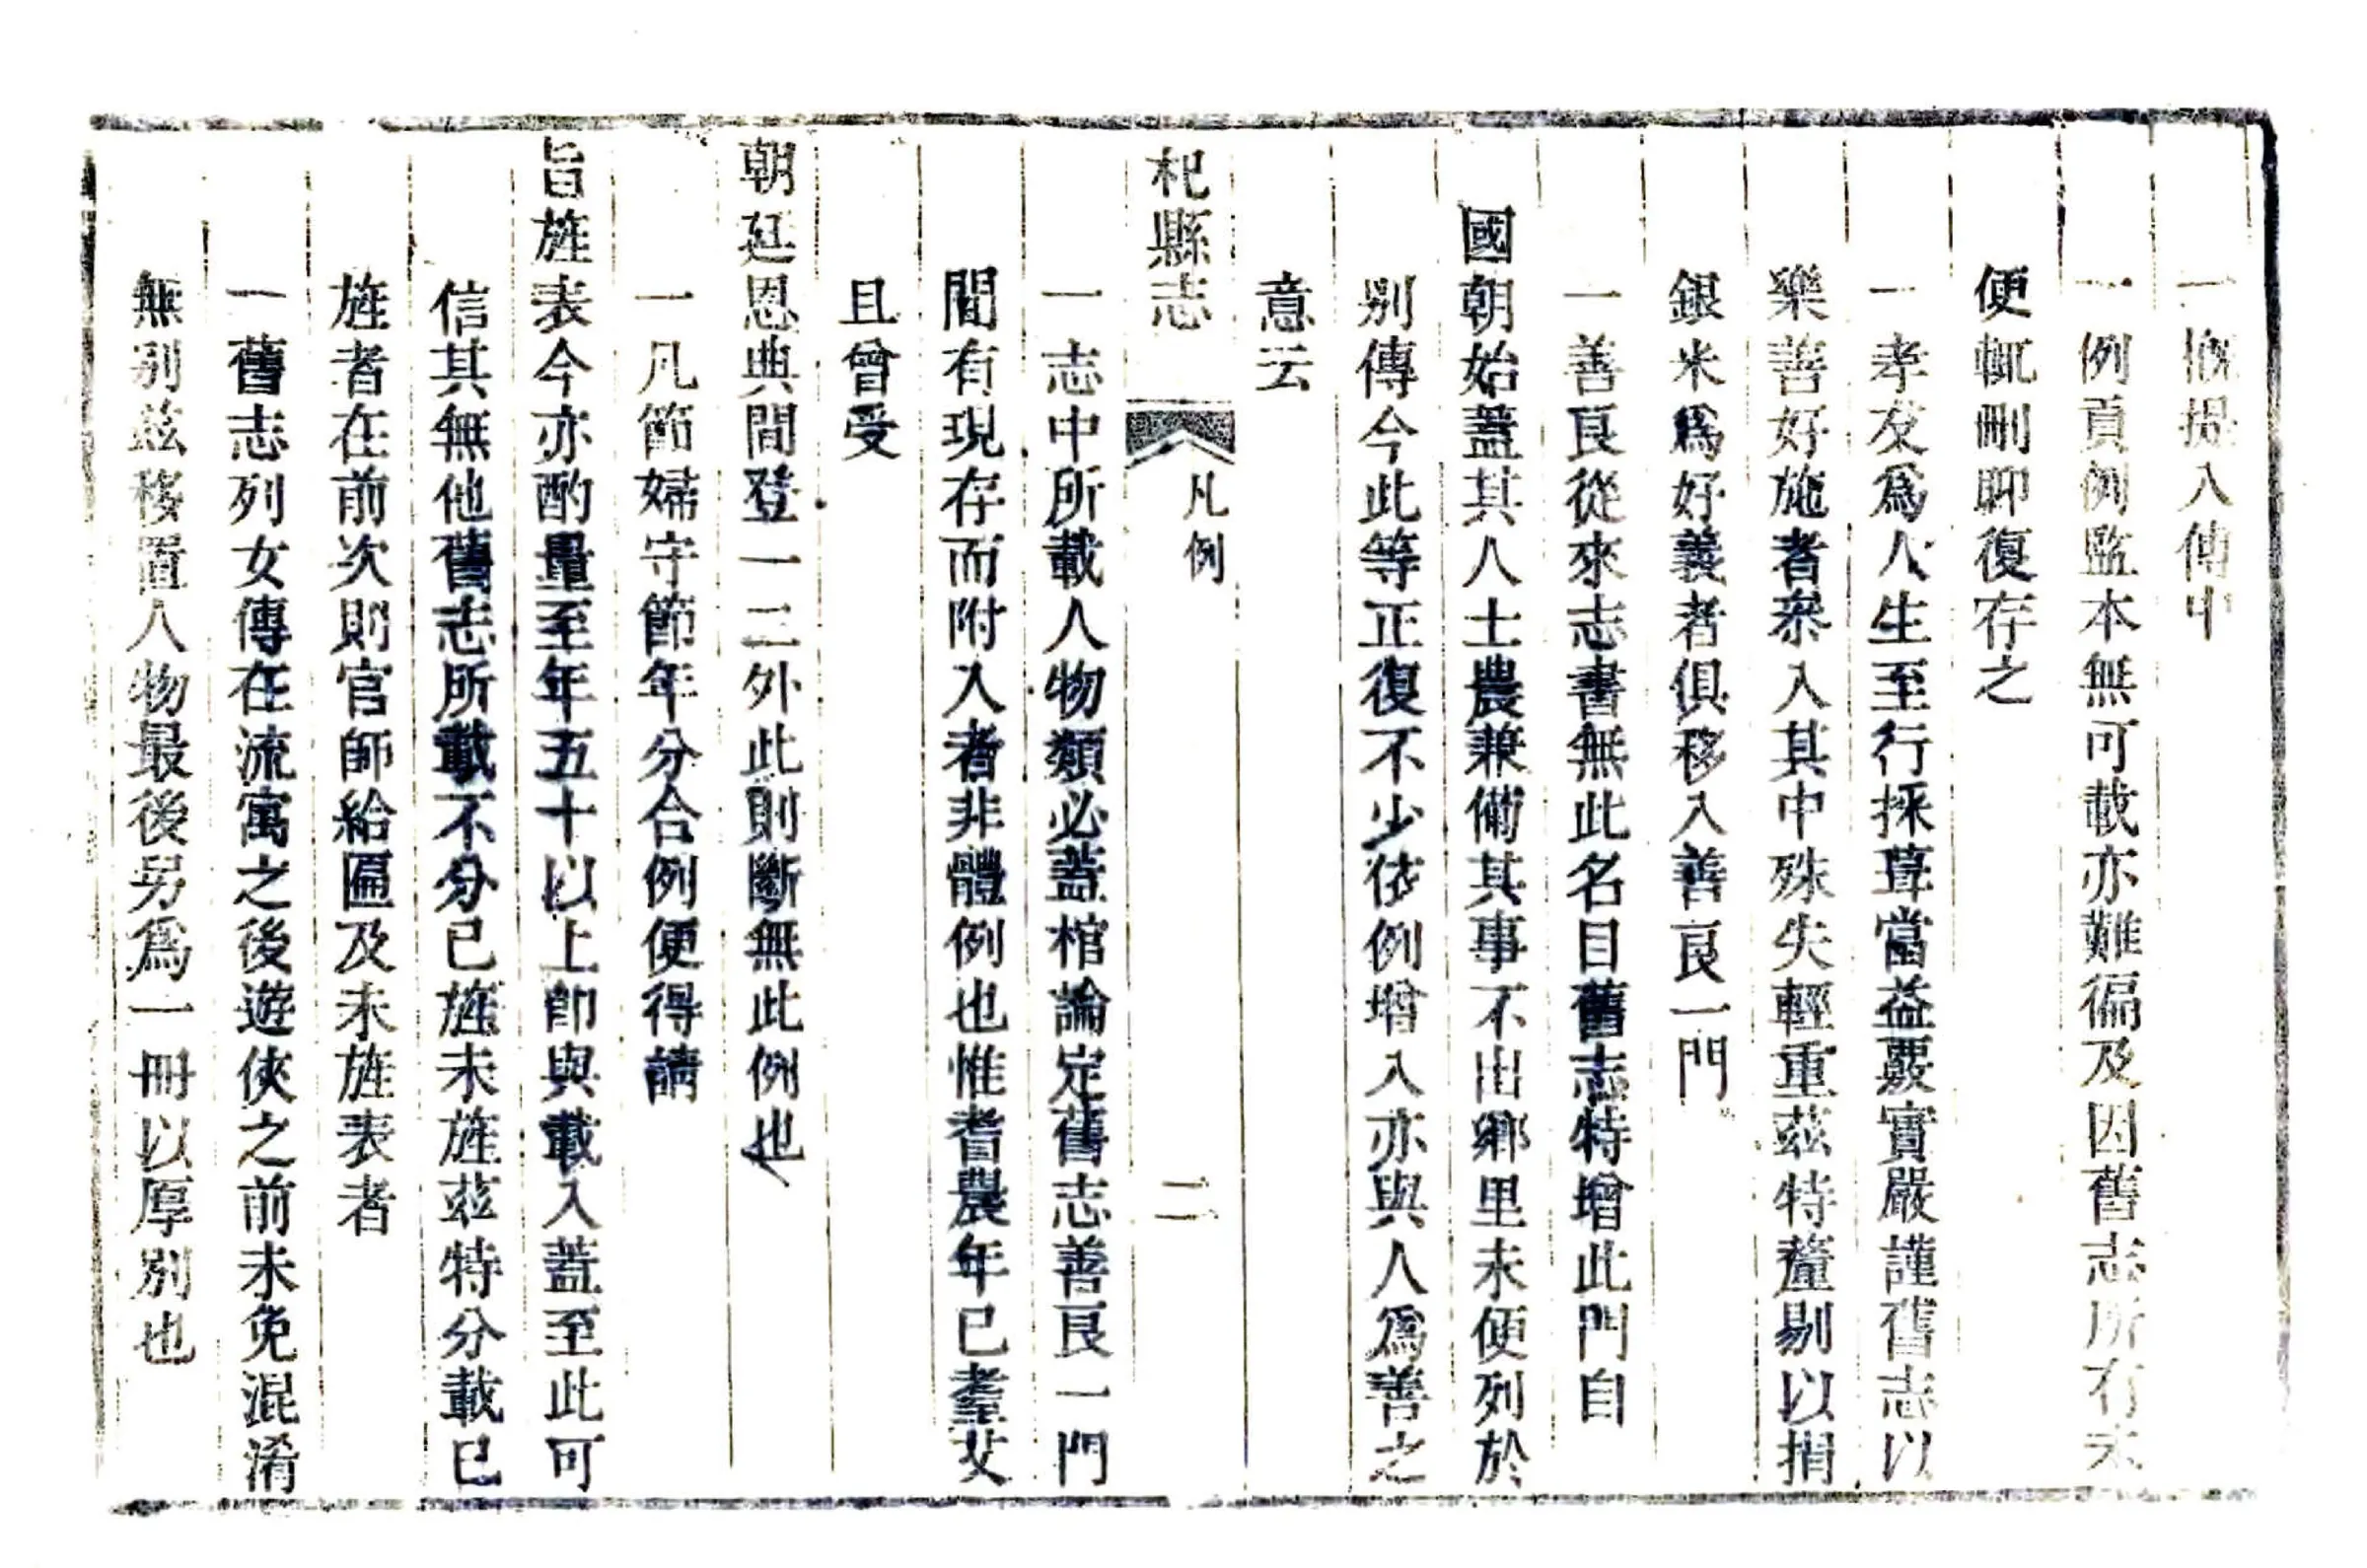 一概提入傳中
一例貢例監本無可載亦難徧及因舊志所有未
便輒刪聊復存之
一孝友爲人生至行採葺當益覈實嚴謹舊志以
樂善好施者叅入其中殊失輕重茲特釐剔以捐
銀米爲好義者俱移入善良一門
一善良從來志書無此名目舊志特增此門自
國朝始蓋其人士農兼備其事不出鄉里未便列於
別傳今此等正復不少依例增入亦與人爲善之
意云
杞縣志 凡例 二
一志中所載人物類必蓋棺論定舊志善良一門
間有現存而附入者非體例也惟耆農年已耄艾
且曾受
朝廷恩典間登一二外此則斷無此例也
一凡節婦守節年分合例便得請
旨旌表今亦酌量至年五十以上即與載入蓋至此可
信其無他舊志所載不分已旌未旌茲特分載已
旌者在前次則官師給匾及未旌表者
一舊志列女傳在流寓之後遊俠之前未免混淆
無別茲移置人物最後另爲一冊以厚別也